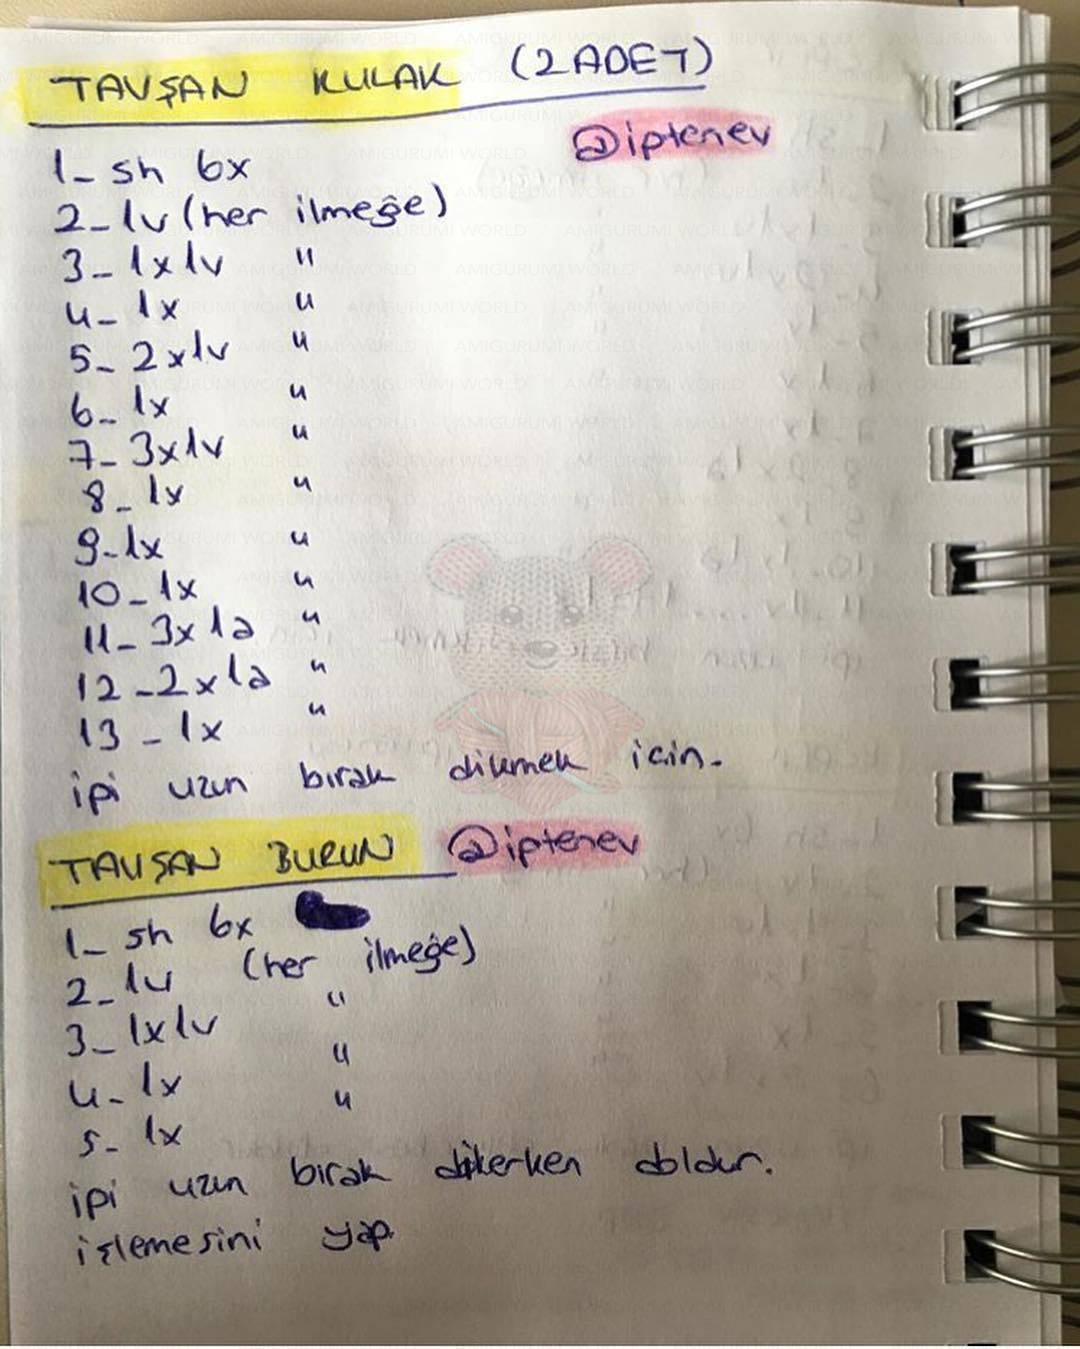 TAVŞAN KULAK (2 ADET)
@iptenev
1_ sh 6x
2_ 1v (her ilmeğe)
3_ 1x1v "
4_ 1x "
5_ 2x1v "
6_ 1x "
7_ 3x1v "
8_ 1x "
9_1x "
10_1x "
11_ 3x1a "
12_2x1a "
13_ 1x "
ipi uzun bırak dikmek için.
TAVŞAN BURUN @iptenev
1_ sh 6x
2_ 1v (her ilmeğe)
3_ 1x1v "
4_ 1x "
5_ 1x "
ipi uzun bırak dikerken doldur.
işlemesini yap.
AMIGURUMI WORLD